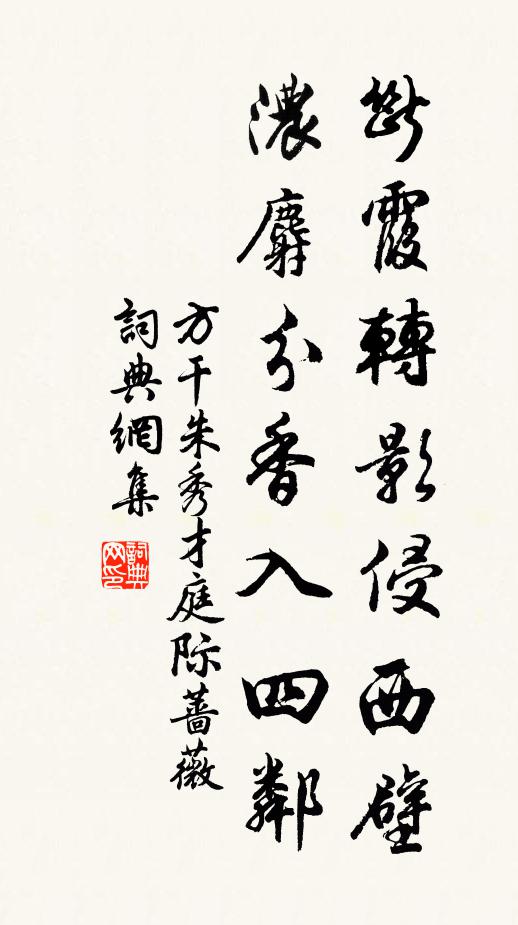 斷霞轉影侵西壁
濃麝分香入四鄰
方干朱秀才庭际薔薇
詞典網集
詞典网印